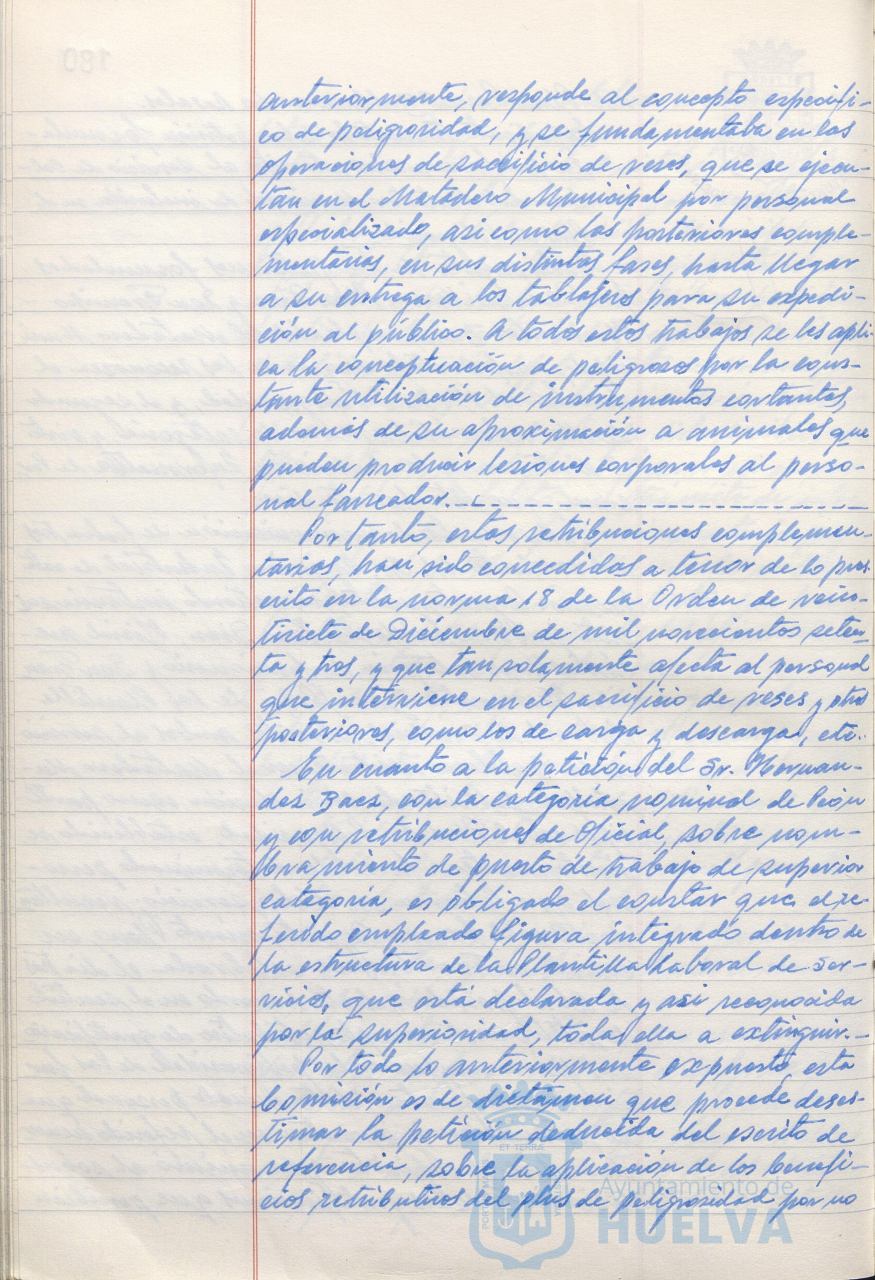 anteriormente, responde al concepto especifi-
co de peligrosidad, y se fundamentaba en las
operaciones de sacrificio de reses, que se ejecu-
tan en el Matadero Municipal por personal
especializado, asi como las posteriores comple-
mentarias, en sus distintas fases, hasta llegar
a su entrega a los tablajeros para su expedi-
ción al público. A todos estos trabajos se les apli-
ca la conceptuación de peligrosos por la cons-
tante utilización de instrumentos cortantes,
además de su aproximación a animales que
pueden producir lesiones corporales al perso-
nal faneador.
Por tanto, estas retribuciones complemen-
tarias, han sido concedidas a tenor de lo pres-
crito en la norma 18 de la Orden de vein-
tisiete de Diciembre de mil novecientos seten-
ta y tres, y que tan solamente afecta al personal
que interviene en el sacrificio de reses y otros
posteriores, como los de carga y descarga, etc.
En cuanto a la petición del Sr. Hernan-
dez Baez, con la categoria nominal de Peón
y con retribuciones de Oficial, sobre nom-
bramiento de puesto de trabajo de superior
categoría, es obligado el constar que el re-
ferido empleado figura integrado dentro de
la estructura de la Plantilla Laboral de Ser-
vicios, que está declarada y asi reconocida
por la superioridad, toda ella a extinguir.-
Por todo lo anteriormente expuesto, esta
Comisión es de dictámen que procede deses-
timar la petición deducida del escrito de
referencia, sobre la aplicación de los benefi-
cios retributivos del plus de peligrosidad por no
Ayuntamiento de
HUELVA